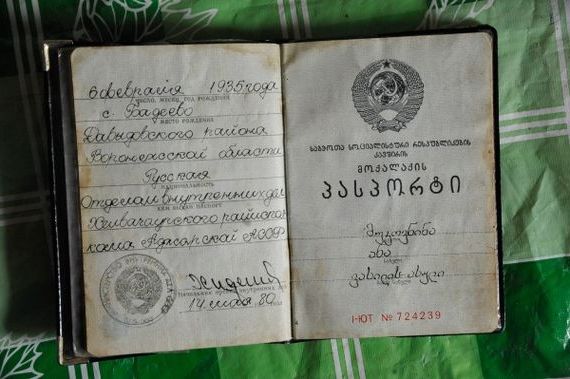 6 февраля 1935 года
число, месяц, год рождения
с. Бадеево
место рождения
Давыдовского района
Воронежской области
Русская
национальность
Отделом внутренних дел
кем выдан паспорт
Хелвачаурского
кома Аджарской АССР
14 мая 80
საბჭოთა სოციალისტური რესპუბლიკების
კავშირის
მოქალაქის
პასპორტი
ანა
სახელი
ვასილის ასული
I-ЮТ № 724239